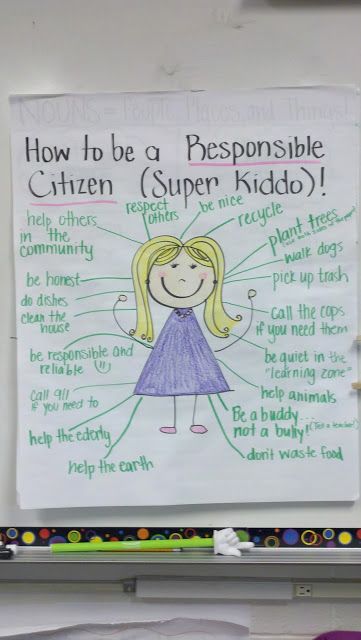 NOUNS = People, Places, and Things!
How to be a Responsible
Citizen (Super Kiddo)!
help others
in the
community
respect
others
be nice
recycle
plant trees
walk dogs
pick up trash
be honest
do dishes
clean the
house
call the cops
if you need them
be responsible and
reliable
be quiet in the
"learning zone"
call 911
if you need to
help animals
Be a buddy...
not a bully! (Tell a teacher!)
help the ederly
help the earth
don't waste food